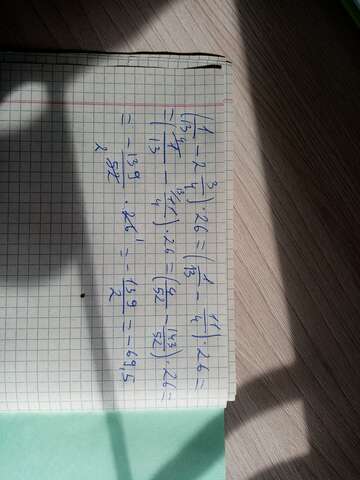 (1/13 - 2 3/4) · 26 = (1/13 - 11/4) · 26 =
= (4/ 1/13 - 13/ 11/4) · 26 = (4/52 - 143/52) · 26 =
= - 139/52 2 · 26 1 = - 139/2 = -69,5